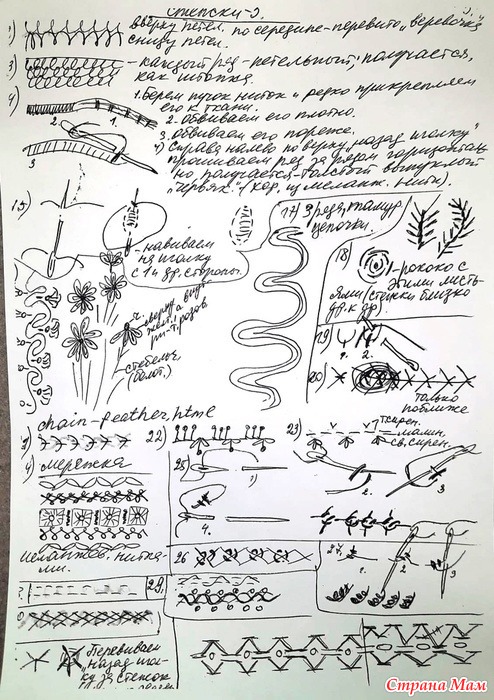 стежки-3.
1) вверху петел. по середине-перевито „веревочка"
снизу петел.
3) - каждый ряд-петельный; получается,
как штопка.
4) 1. Берем пучок ниток и редко прикрепляем
его к ткани.
2. обвиваем его плотно.
3. обвиваем его пореже.
4) Справа налево по верху „назад иголку"
прошиваем ряд за рядом горизонталь
но получается-толстый выпуклый
"червяк" (кор. из меланж. нити).
1. 2. 3
15)
- навиваем
на иголку
с 1 и др. стороны.
стебельч.
(болот.)
17) 3 ряда тамбур
цепочки.
18)
- рококо с
этими листь-
ями (стежки близко
др. к др.)
19) 1. 2.
20)
только
поближе
chain-feather, html
22)
23) Т. сирен.
малин.
св. сирен.
4) мережка
25) 1) 2. 3
4.
меланжев. нитка-
ми.
26
27. 1 2 3
29.
Перевиваем
назад игол-
ку за стежок
Страна Мам